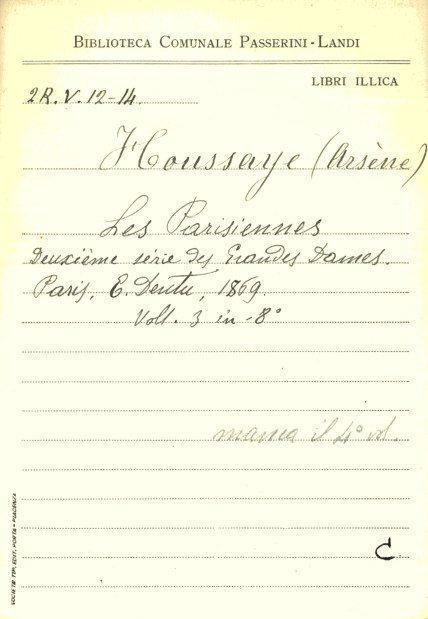 BIBLIOTECA COMUNALE PASSERINI-LANDI
LIBRI ILLICA
2R. V. 12-14
Houssaye (Arsène)
Les Parisiennes
Deuxième série des Grandes Dames.
Paris, E. Dentu, 1869.
Voll. 3 in-8°
manca il 4° vol.
C
SOCIETÀ TIP. EDIT. PORTA-PIACENZA